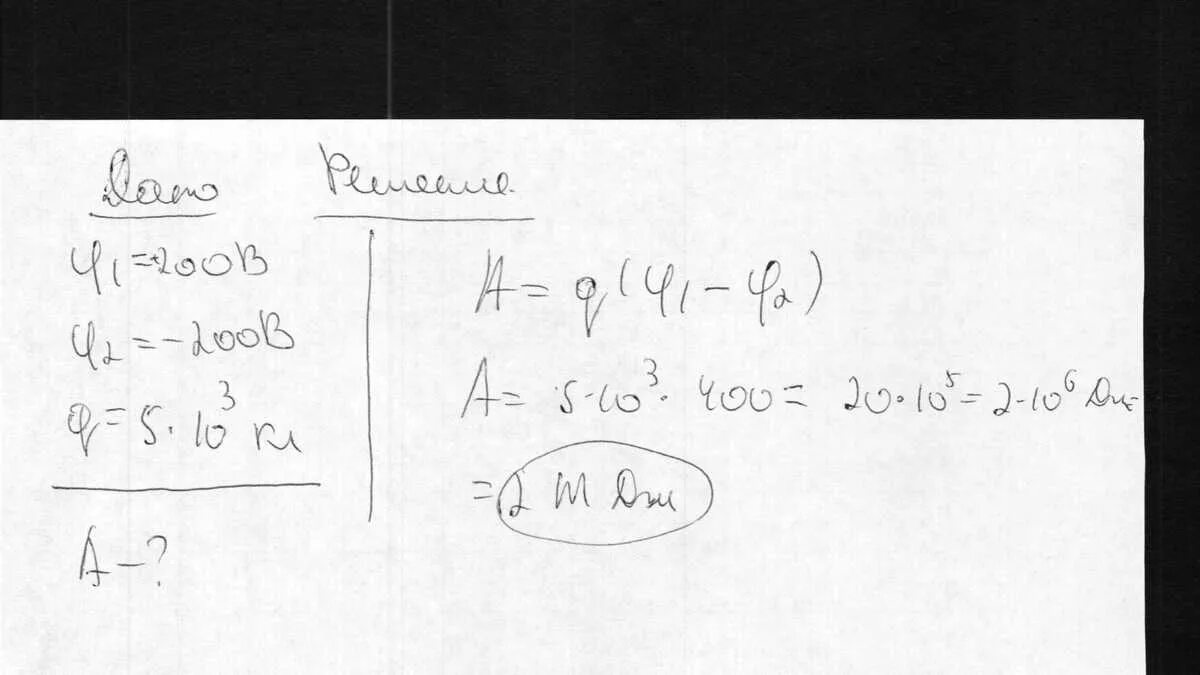 Дано
φ₁ = 200В
φ₂ = -200В
q = 5·10³ Кл
A - ?
Решение
A = q(φ₁ - φ₂)
A = 5·10³·400 = 20·10⁵ = 2·10⁶ Дж
= 2 МДж